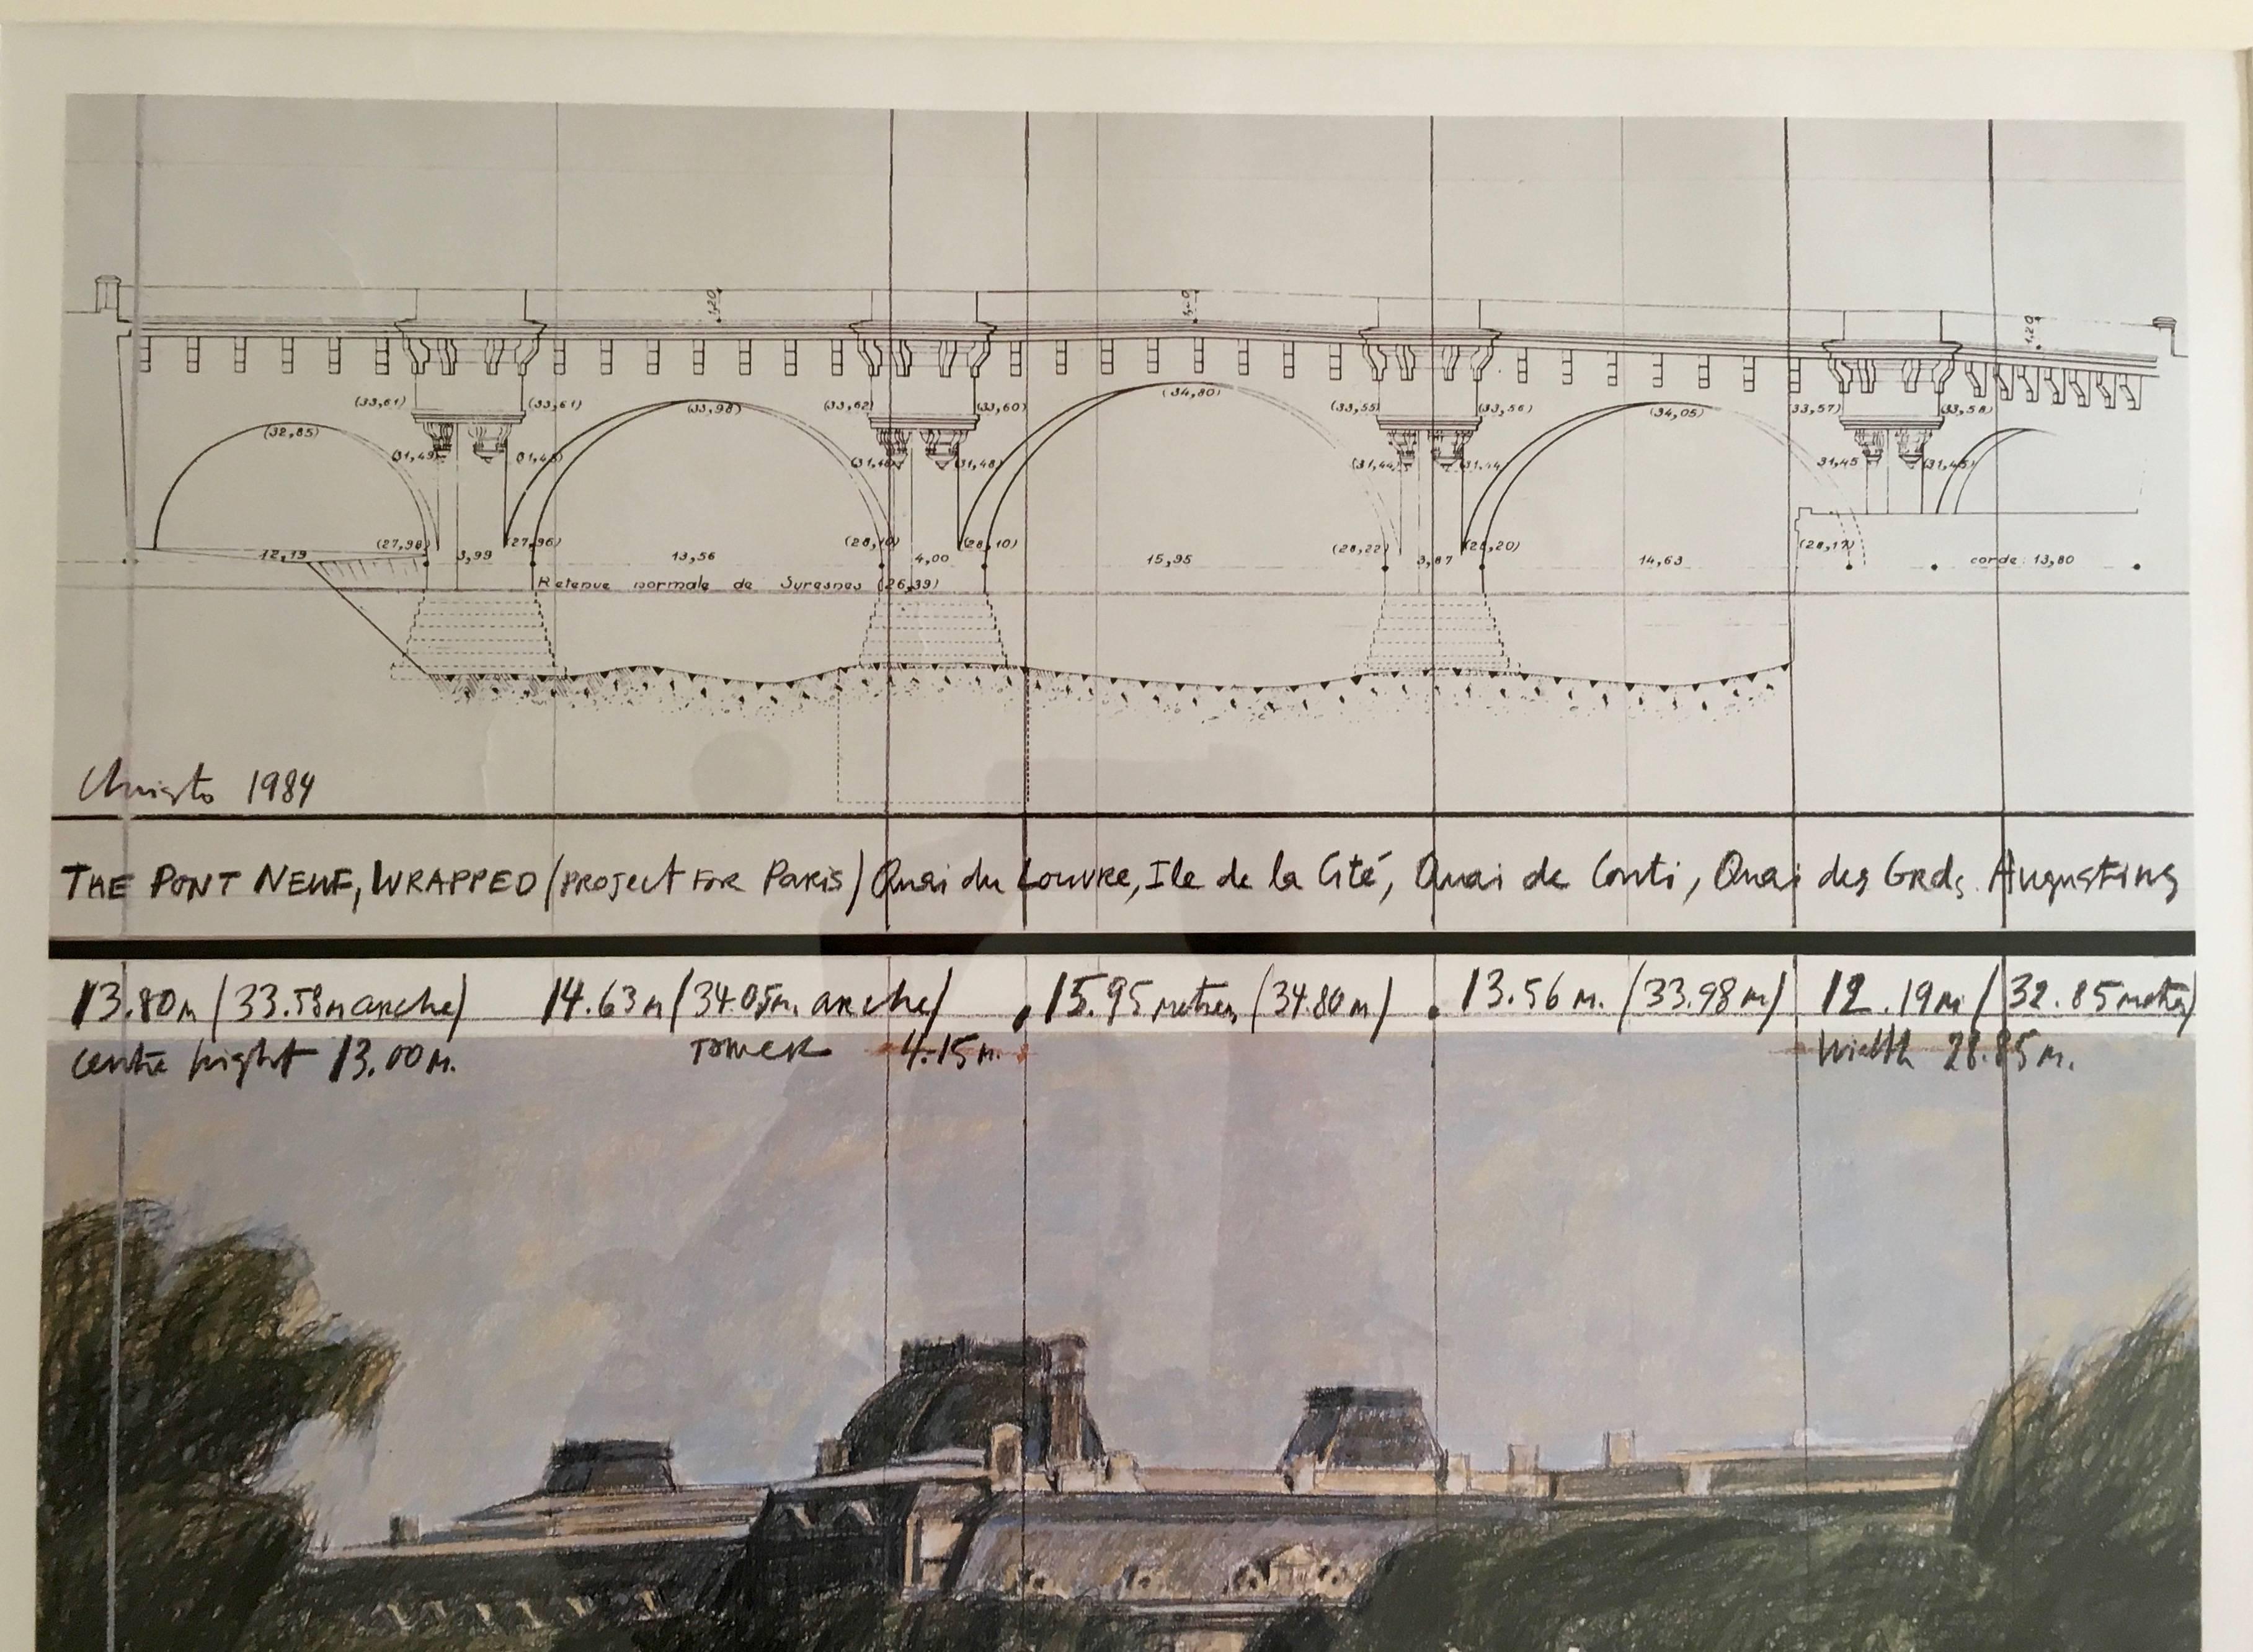 1,20 1,20 1,20
(33,61) (33,61) (33,98) (33,62) (33,60) (34,80) (33,55) (33,56) (34,05) (33,57) (33,58)
(32,85)
(31,49) (31,48) (31,48) (31,44) 31,44 31,45 (31,45)
(27,98) (27,96) (28,10) (28,10) (28,22) (28,20) (28,17)
12,19 3,99 13,56 4,00 15,95 3,87 14,63 corde: 13,80
Retenue normale de Suresnes (26,39)
Christo 1984
THE PONT NEUF, WRAPPED (PROJECT FOR PARIS) Quai du Louvre, Ile de la Cité, Quai de Conti, Quai des Grds. Augustins
13.80m (33.58m arche) 14.63m (34.05m. arche) 15.95 metres (34.80m) 13.56 m. (33.98m) 12.19m (32.85 metres)
centre hight 13.00m. TOWER 4.15m. Width 28.85m.